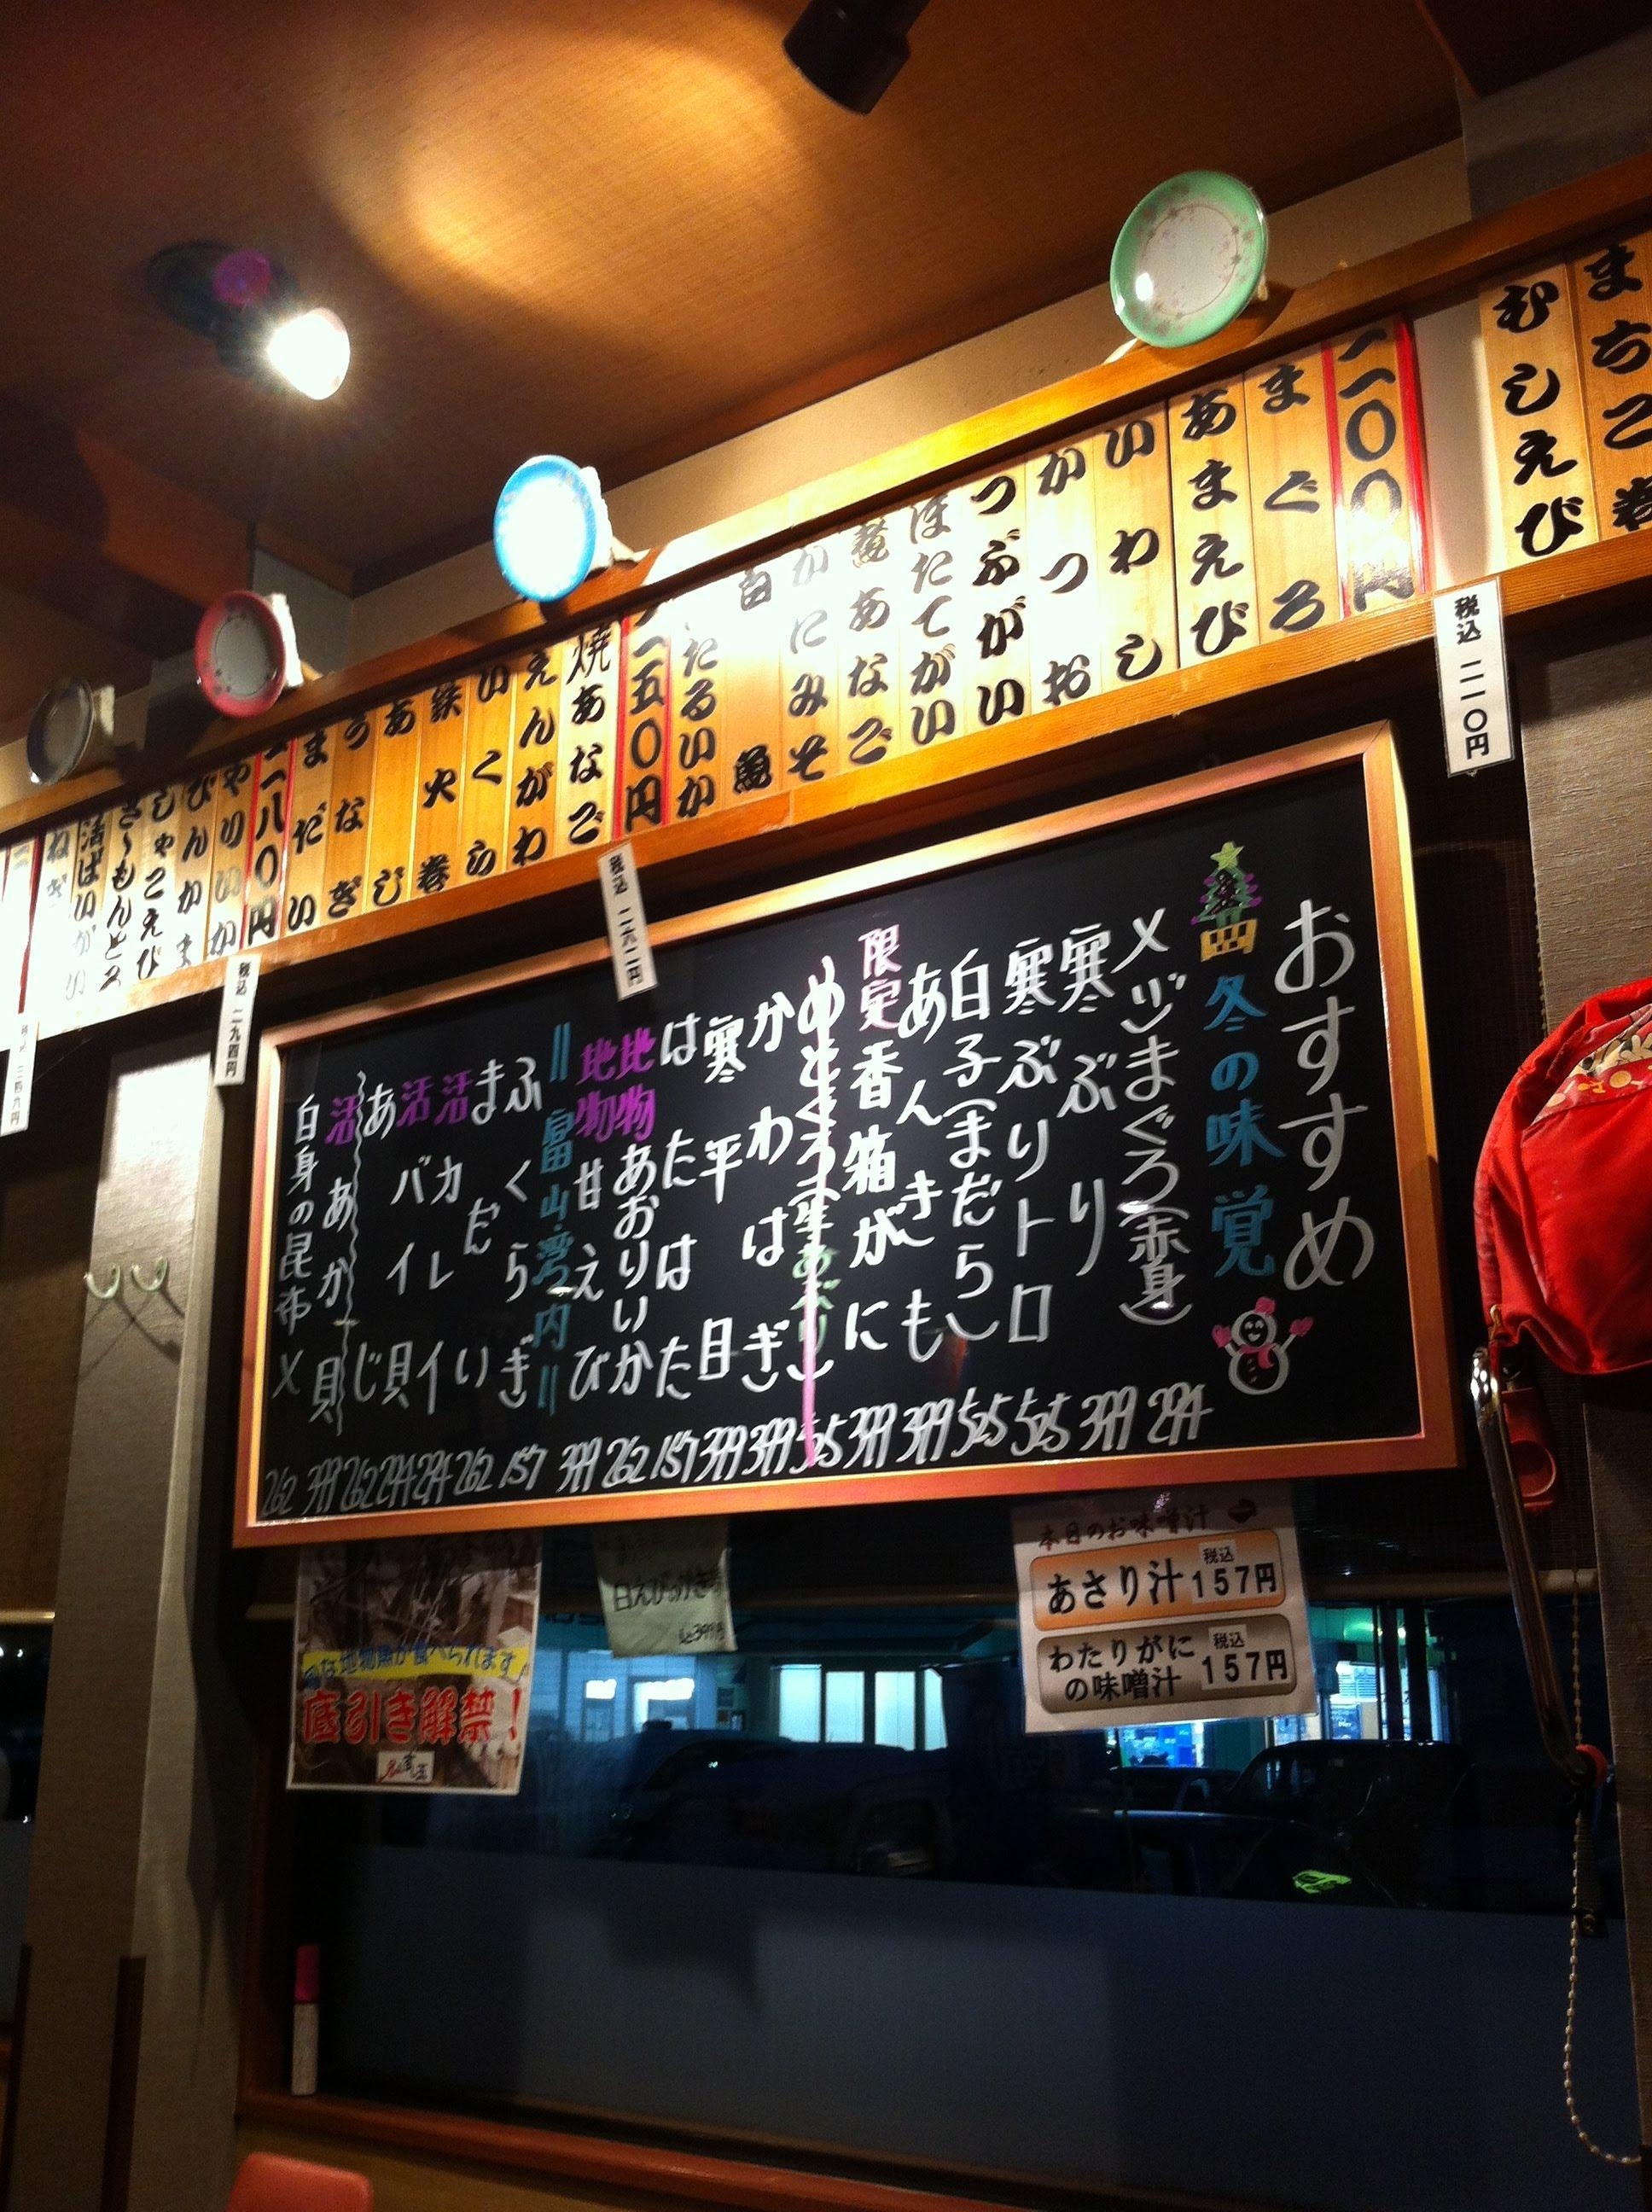 まちこ巻
むしえび
二一〇〇円
まぐろ
あまえび
いわし
かつお
つぶがい
ほたてがい
煮あなご
かにみそ
ほたるいか
二五〇円
焼あなご
えんがわ
いくら
鉄火巻
あじ
うなぎ
まだい
二八〇円
やりいか
びんかま
しゃこえび
さーもんとろ
活ばいがい
ねぎ
税込 二一〇円
税込 二六二円
税込 二九四円
おすすめ
冬の味覚
メジまぐろ(赤身) 294
寒ぶり 399
寒ぶりトロ 525
白子(まだら) 525
あんきも 399
限定香箱がに 399
525
かわはぎ 399
寒平目 399
はたはた 157
地物あおりいか 262
地物甘えび 399
=富山湾内=
ふくらぎ 157
まだい 262
活カレイ 294
活バイ貝 294
あじ 262
活あか貝 399
白身の昆布〆 262
本日のお味噌汁
あさり汁 税込 157円
わたりがにの味噌汁 税込 157円
地物魚が食べられます
底引き解禁!